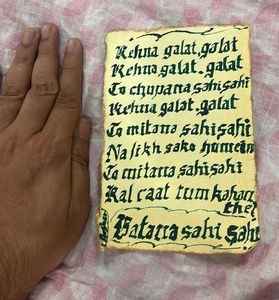 Kehna galat, galat
Kehna galat. galat
To chupana sahi sahi
Kehna galat. galat
To mitana sahi sahi
Na likh sako humein
To mitana, sahi sahi
Kal raat tum kahan
the?
Batana sahi sahi